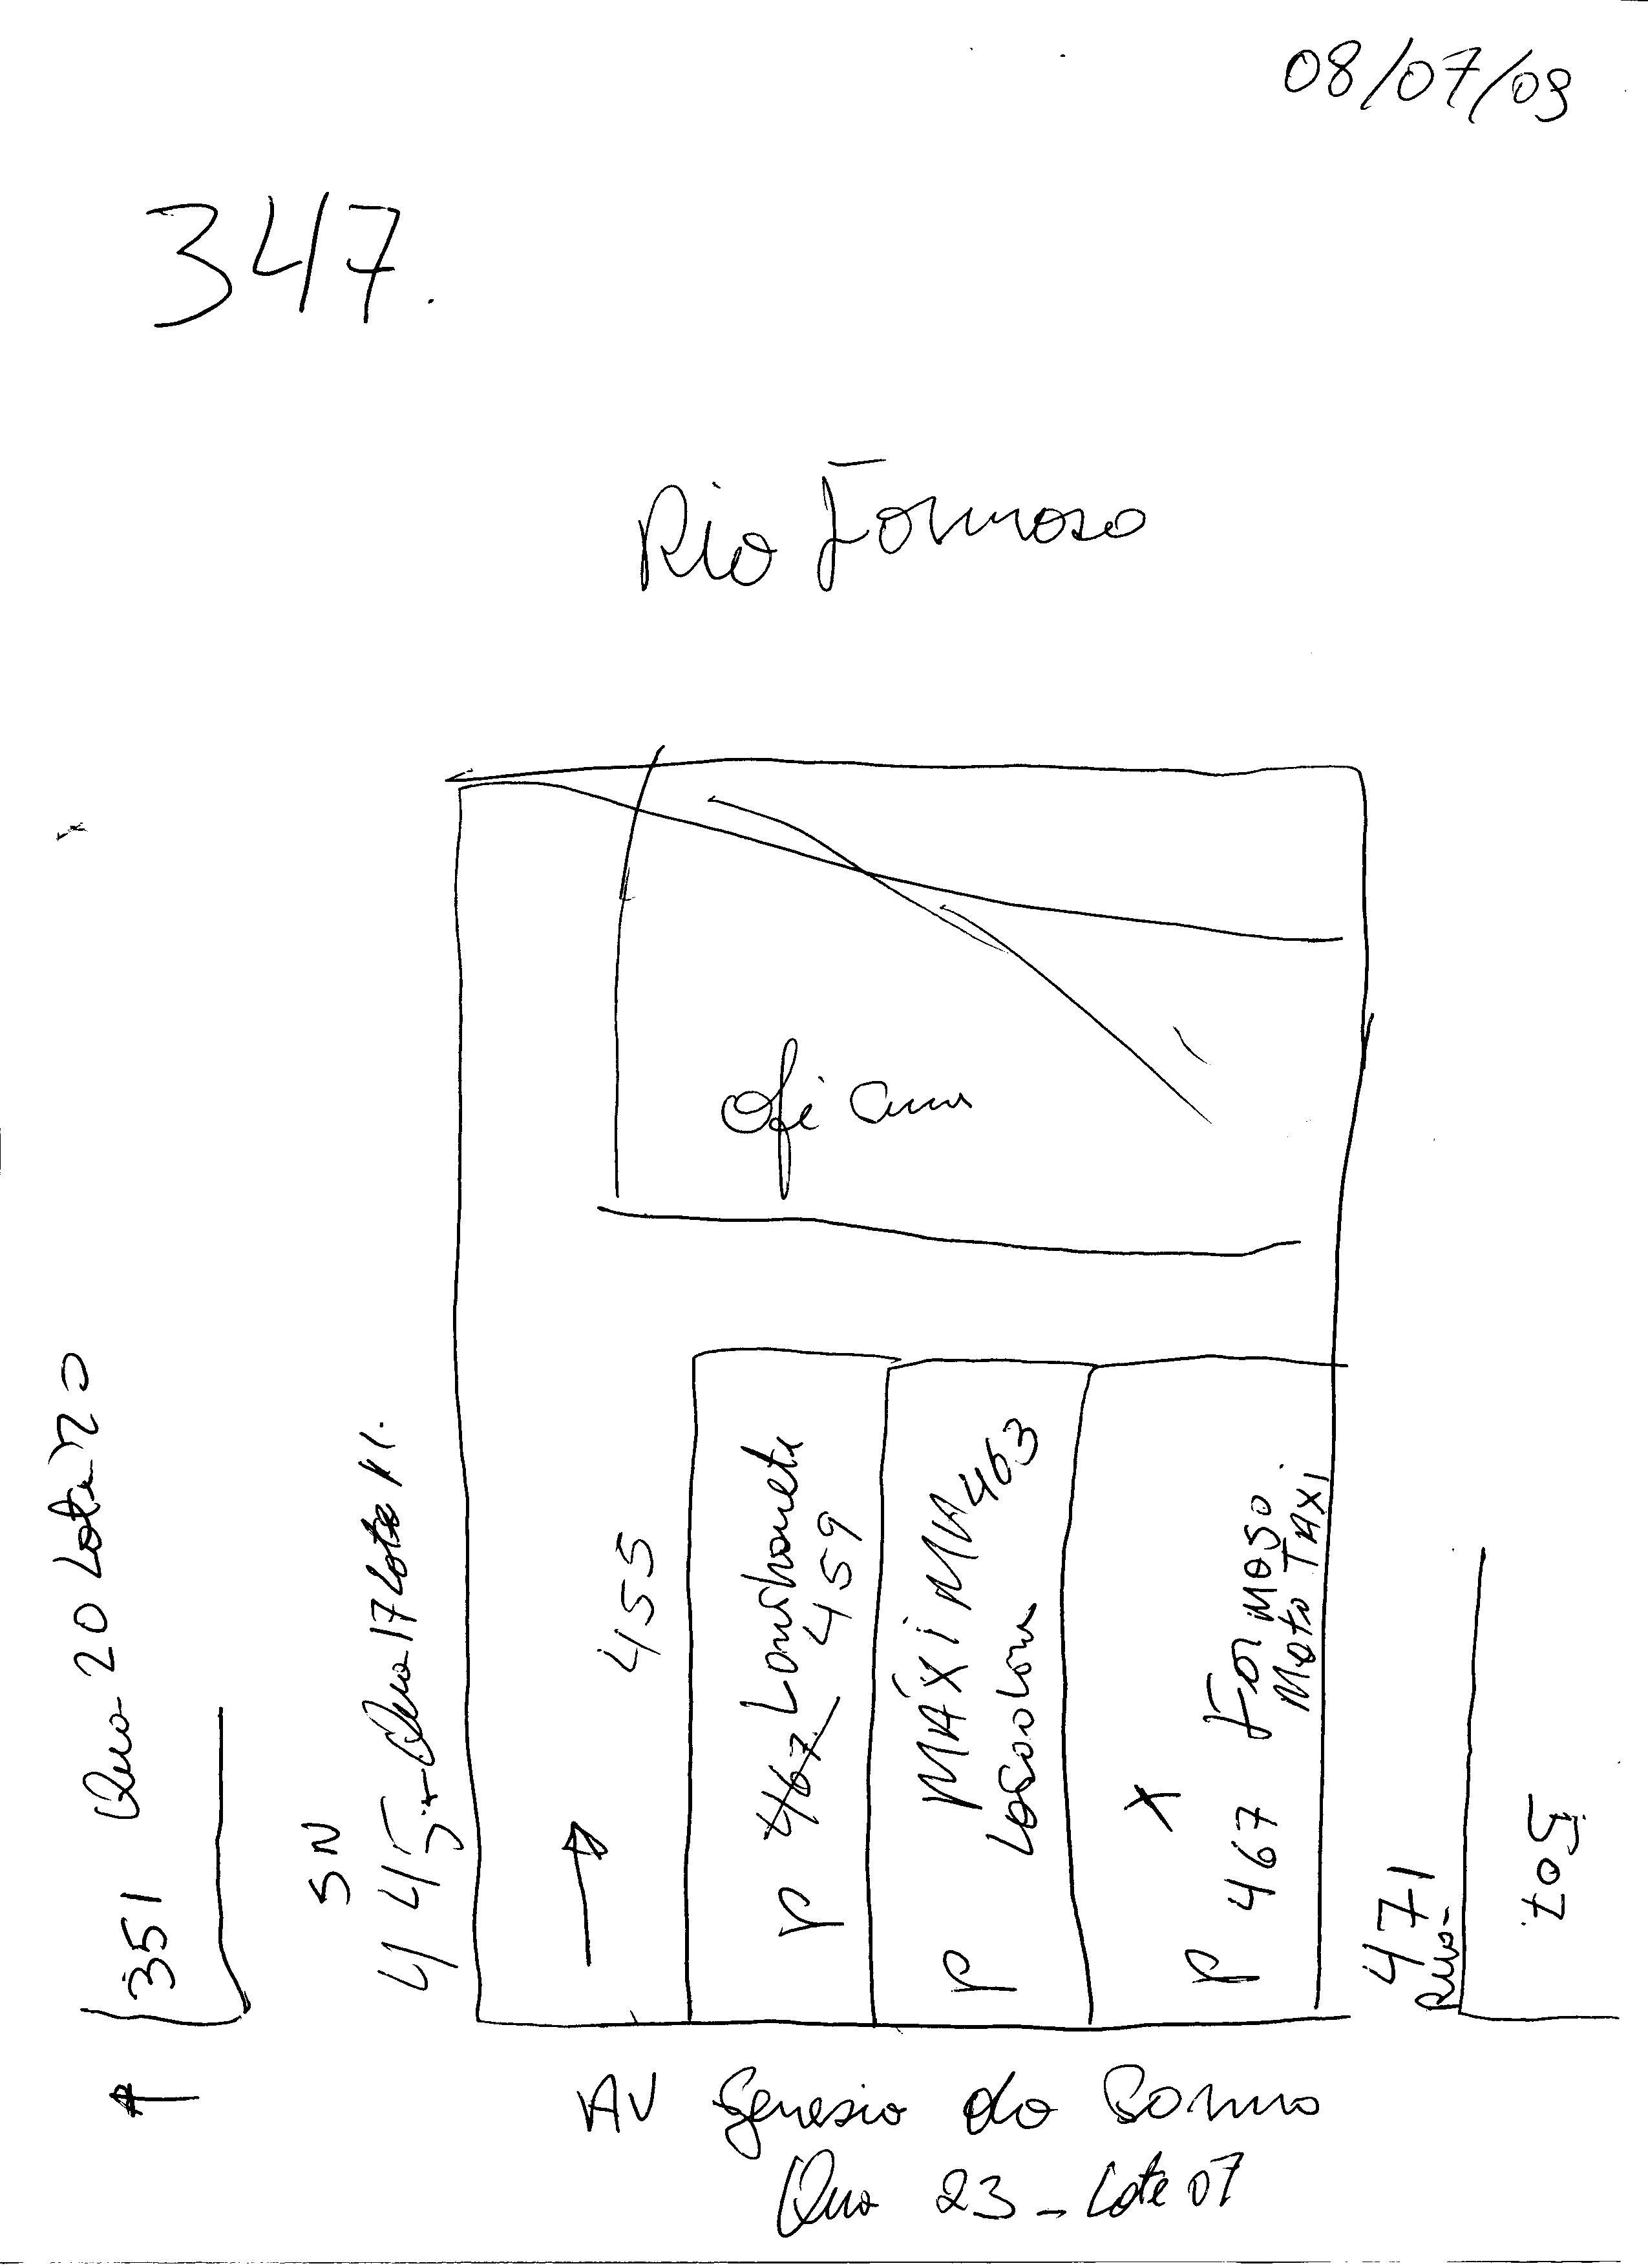 08/07/09
347.
Rio Formoso
Oficina
351 Qua-20 Lote 20
SN
445 - Qua-17 Lote 11.
455
P 467 Lanchonete
459
P MÁXIMA 463
X
P 467 Formoso
Moto TAXI
471
507
AV Genesio do
Qua 23 - Lote 07